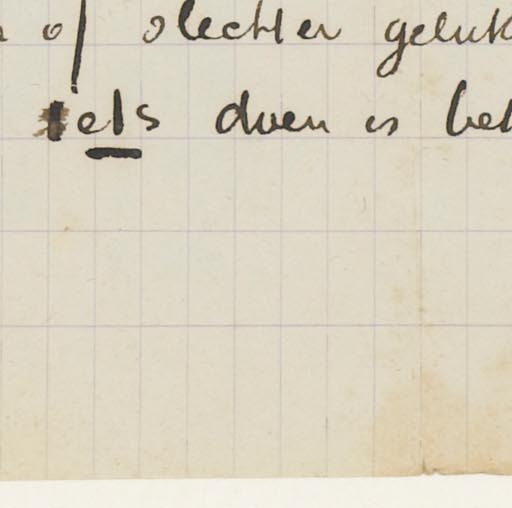 of slechter geluk
iets doen is bet